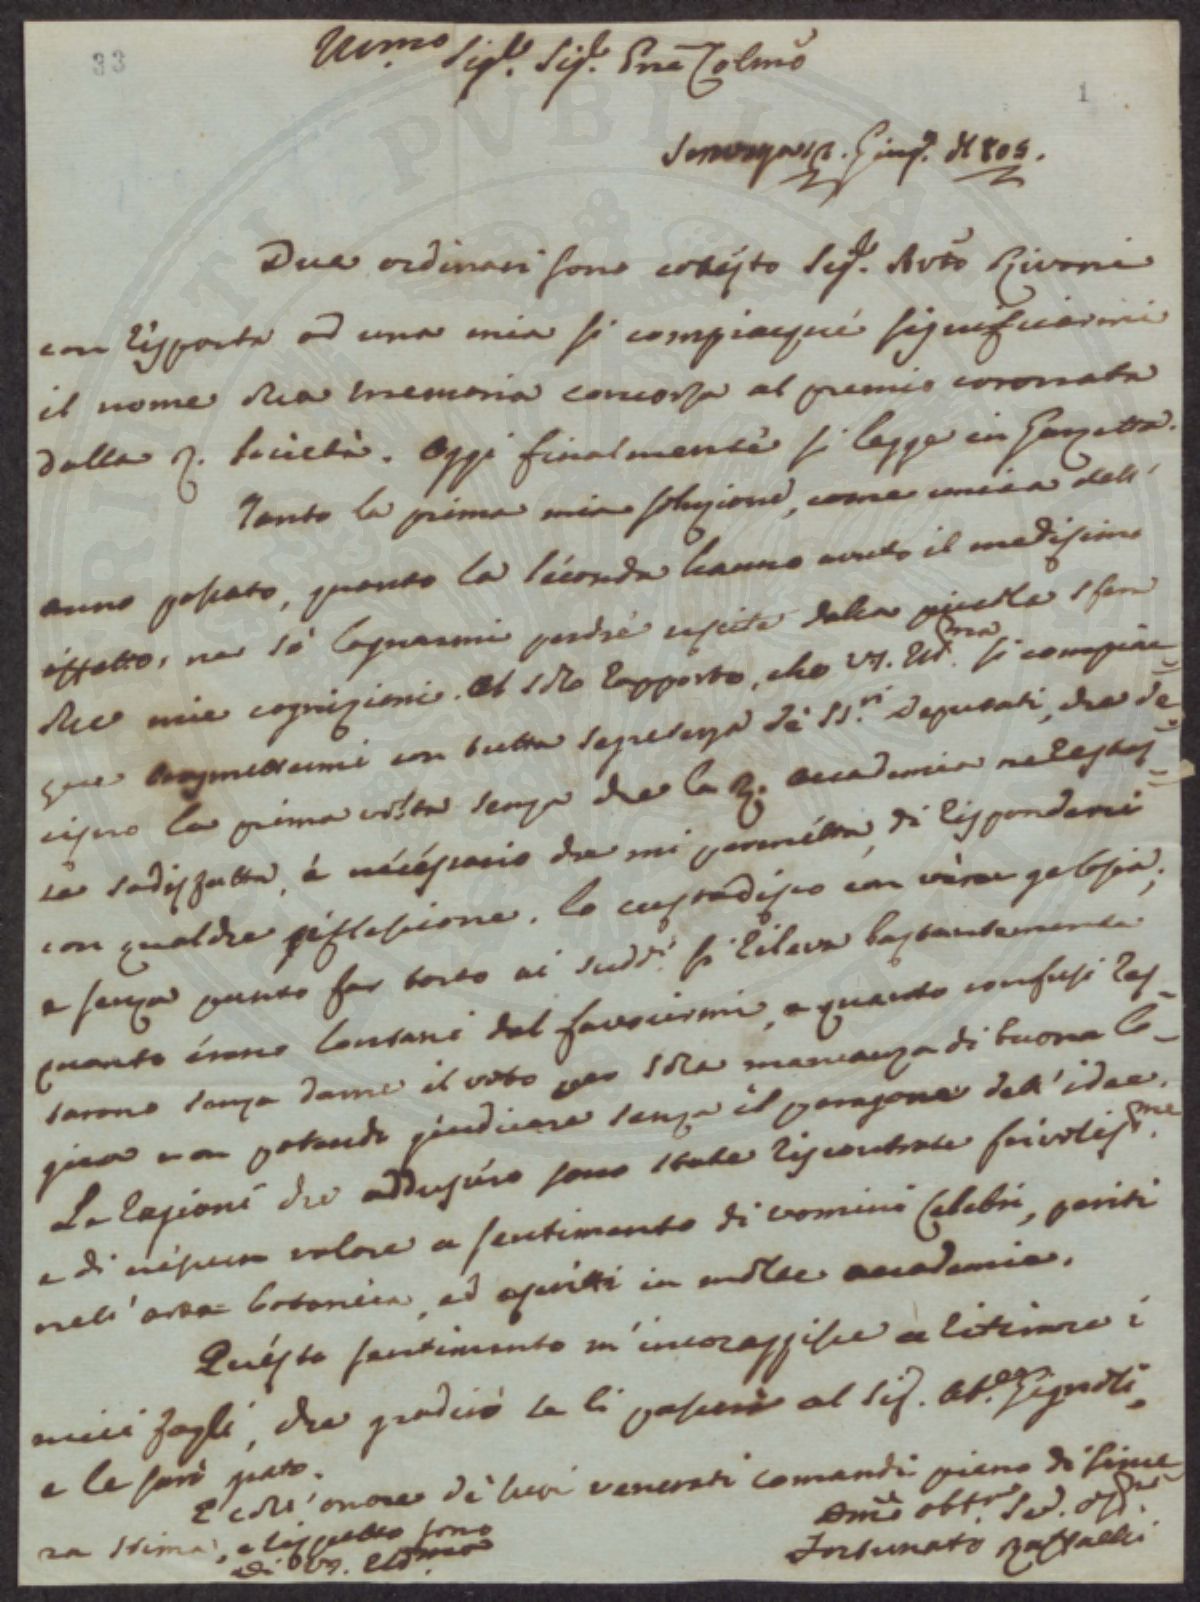 33
Ill.mo Sig.r Sig.r Pne Colmo
1
12. Giug.o del 805.
Due ordinari sono cotesto Sig.r Avto Rivani
con risposta ad una mia si compiacque significarmi
il nome della memoria concorsa al premio coronata
dalla R. Società. Oggi finalmente si legge in Gazzetta.
Tanto la prima mia soluzione, come unica dell'
anno passato, quanto la seconda hanno avuto il medesimo
effetto, ne so lagnarmi perchè uscite dalla piccola sfera
delle mie cognizioni. Al solo rapporto, che VS. Ill.ma si compiac
que trasmettermi con tutta segretezza de' SS.ri Deputati, che de
cisero la prima volta senza che la R. Accademia ne restas
se sodisfatta, è necessario che mi permetta, di risponderci
con qualche riflessione. Lo custodisco con vera gelosia;
e senza punto far torto ai sudd.i si rileva bastantemente
quanto erano lontani dal favorirmi, e quanto confusi res
tarono senza darne il voto per sola mancanza di buona lo
gica non potendo giudicare senza il paragone dell'idee.
Le ragioni che addussero sono state riscontrate frivoliss.me
e di nessun valore a sentimento di uomini celebri, periti
nell'arte botanica, ed ascritti in molte accademie.
Questo sentimento m'incoraggisce a ritirare i
miei fogli, che gradirò se li passerà al Sig. Ab.e Zignoli,
e le sarò grato.
E coll'onore de' suoi venerati comandi pieno di since
ra stima, e rispetto sono
Di VS. Ill.ma
Dmo obb.mo Se.
Fortunato Raffaelli